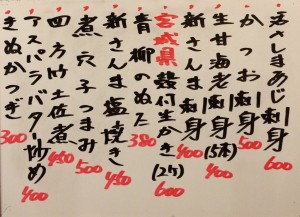 活〆しまあじ刺身 600
かつお刺身 500
生甘海老刺身(5本) 400
宮城県殻付生かき(2ケ) 600
青柳のぬた 380
新さんま刺身 400
新さんま塩焼き 450
煮穴子つまみ 500
四方竹土佐煮 450
アスパラバター炒め 400
きぬかつぎ 300